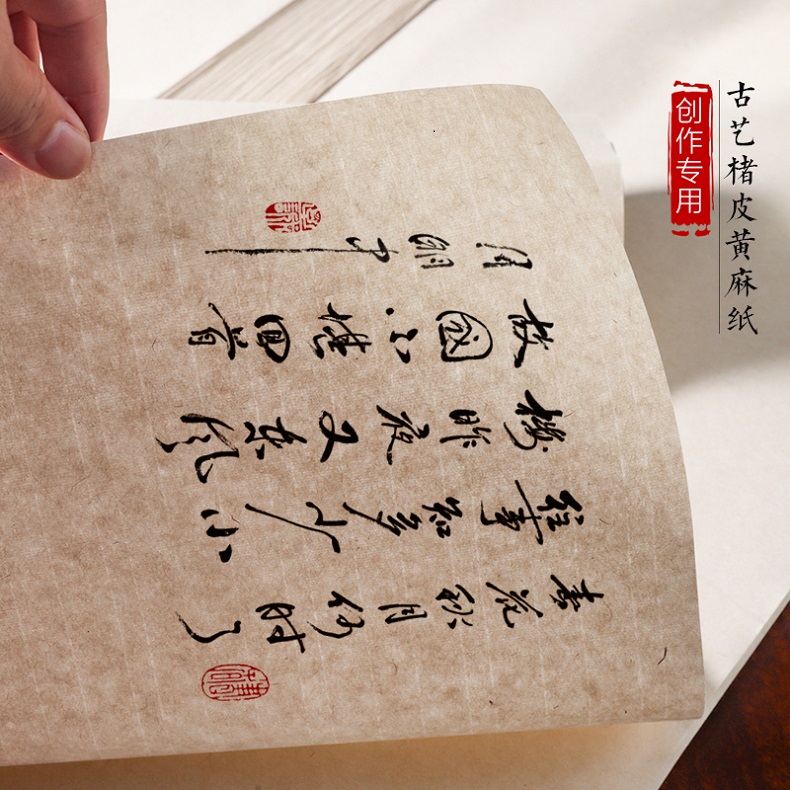 古艺楮皮黄麻纸
创作专用
春花秋月何时了
往事知多少小
楼昨夜又东风
故國不堪回首
月明中